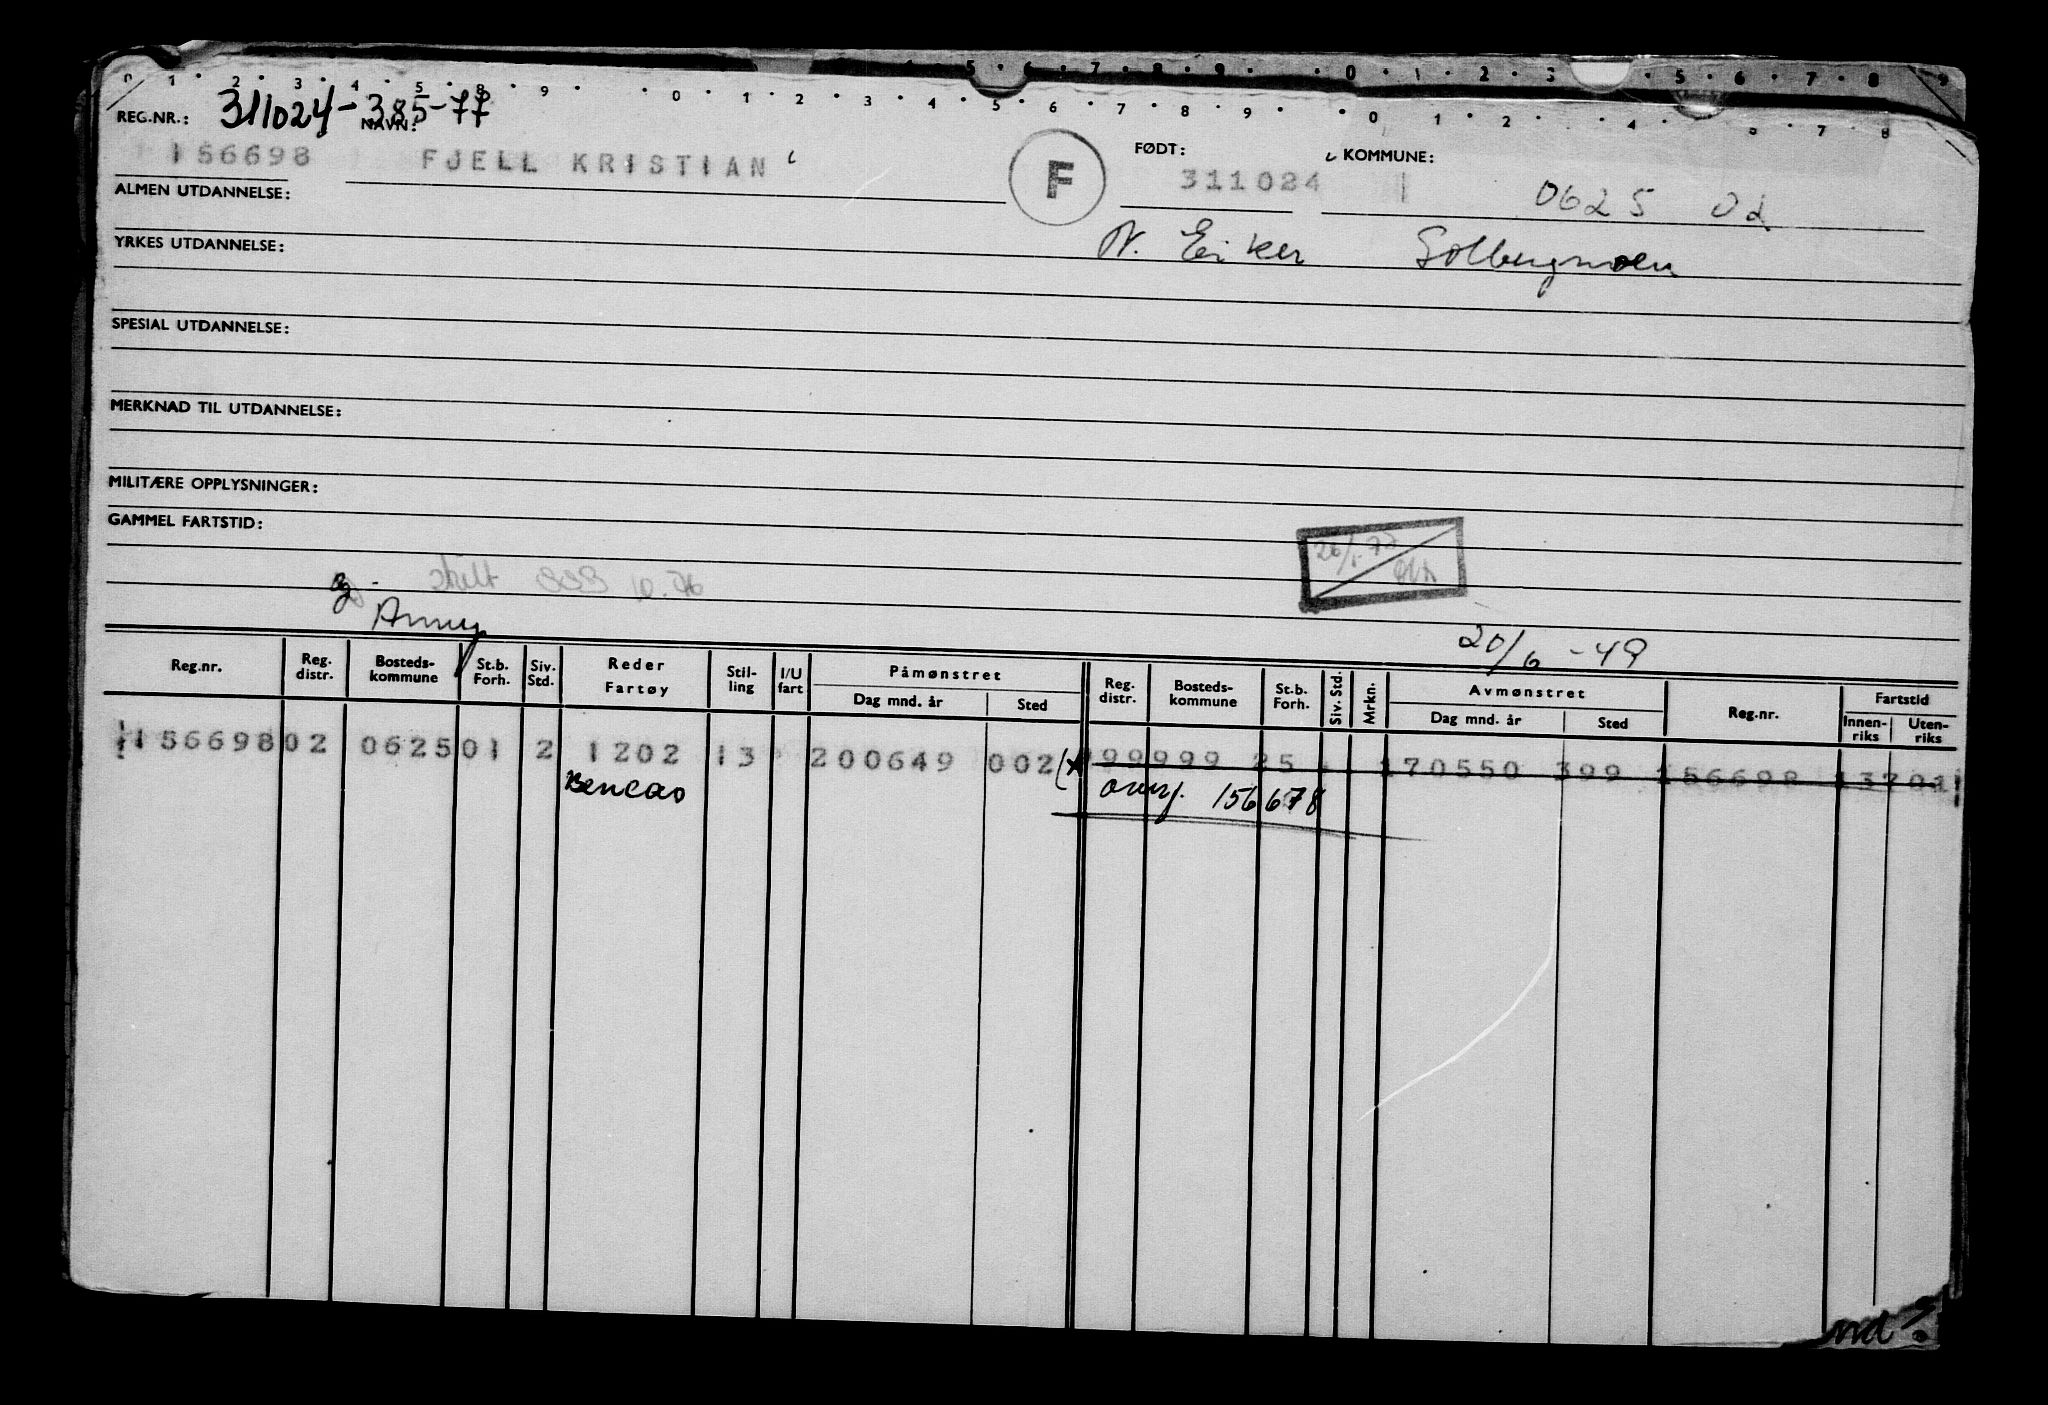 0 1 2 3 4 5 8 9 0 1 2 3 4 5 6 7 8 9 0 1 2 4 6 7 8
4 5 6 7 8 9 0 1 2 3 5 6 7 8 9
311024-385-77
REG.NR.: NAVN: FØDT: KOMMUNE:
156698 FJELL KRISTIAN F 311024 0625 02
ALMEN UTDANNELSE:
YRKES UTDANNELSE: N. Eiker Solbergmoen
SPESIAL UTDANNELSE:
MERKNAD TIL UTDANNELSE:
MILITÆRE OPPLYSNINGER:
GAMMEL FARTSTID:
10.76
20/6-49
Reg.nr. Reg. distr. Bosteds- kommune St.b. Forh. Siv. Std. Reder Fartøy Stil- ling I/U fart Påmønstret Dag mnd. år Sted Reg. distr. Bosteds- kommune St.b. Forh. Siv. Std. Mrkn. Avmønstret Dag mnd. år Sted Reg.nr. Fartstid Innen- riks Uten- riks
156698 02 0625 01 2 1202 13 200649 002 99999 25 170550 399 156698
Bencas overf. 156678